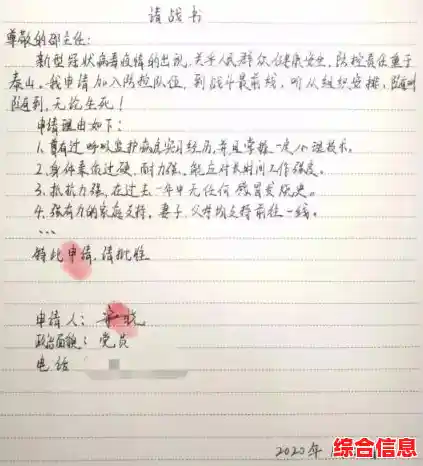 请战书
尊敬的邵主任:
新型冠状病毒疫情的出现,关乎人民群众健康安全,防控责任重于
泰山。我申请加入防控队伍,到战斗最前线,听从组织安排,随叫
随到,无论生死!
申请理由如下:
1.曾有过呼吸监护病房实习经历,并且掌握一定护理技术。
2.身体素质过硬,耐力强,能应对长时间工作强度。
3.抵抗力强,在过去一年中无任何感冒发烧史。
4.强有力的家庭支持,妻子、父母均支持前往一线。
...
特此申请,请批准
申请人:
政治面貌:党员
电话
2020年
综合信息